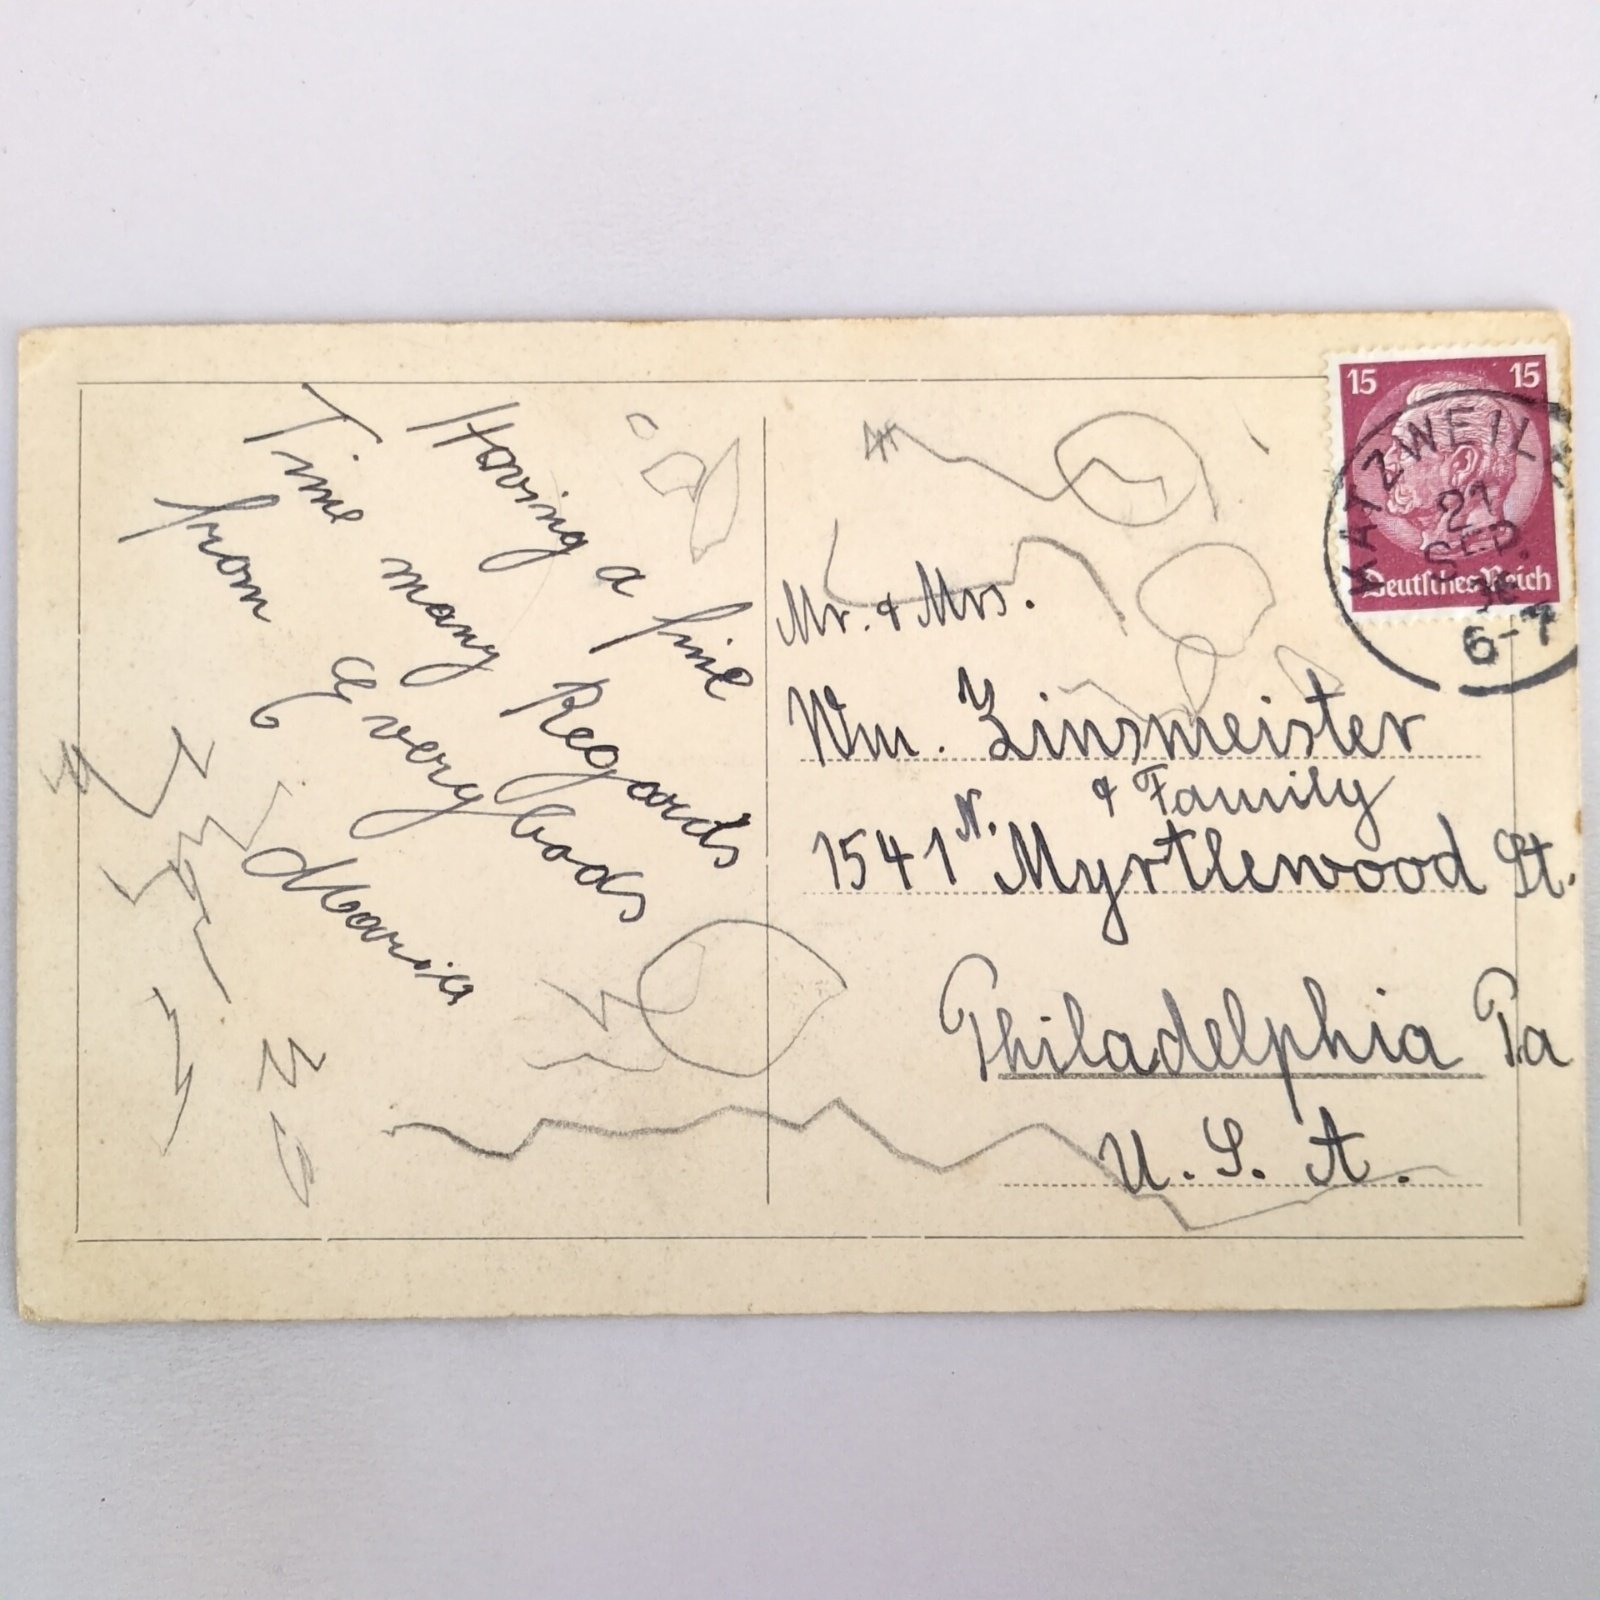 Having a fine
Time many Regards
from Everybods
Maria
15 15
Deutsches Reich
KATZWEILER
21
SEP.
6-7
Mr. & Mrs.
Wm. Zinsmeister
& Family
1541 N. Myrtlewood St.
Philadelphia Pa
U. S. A.